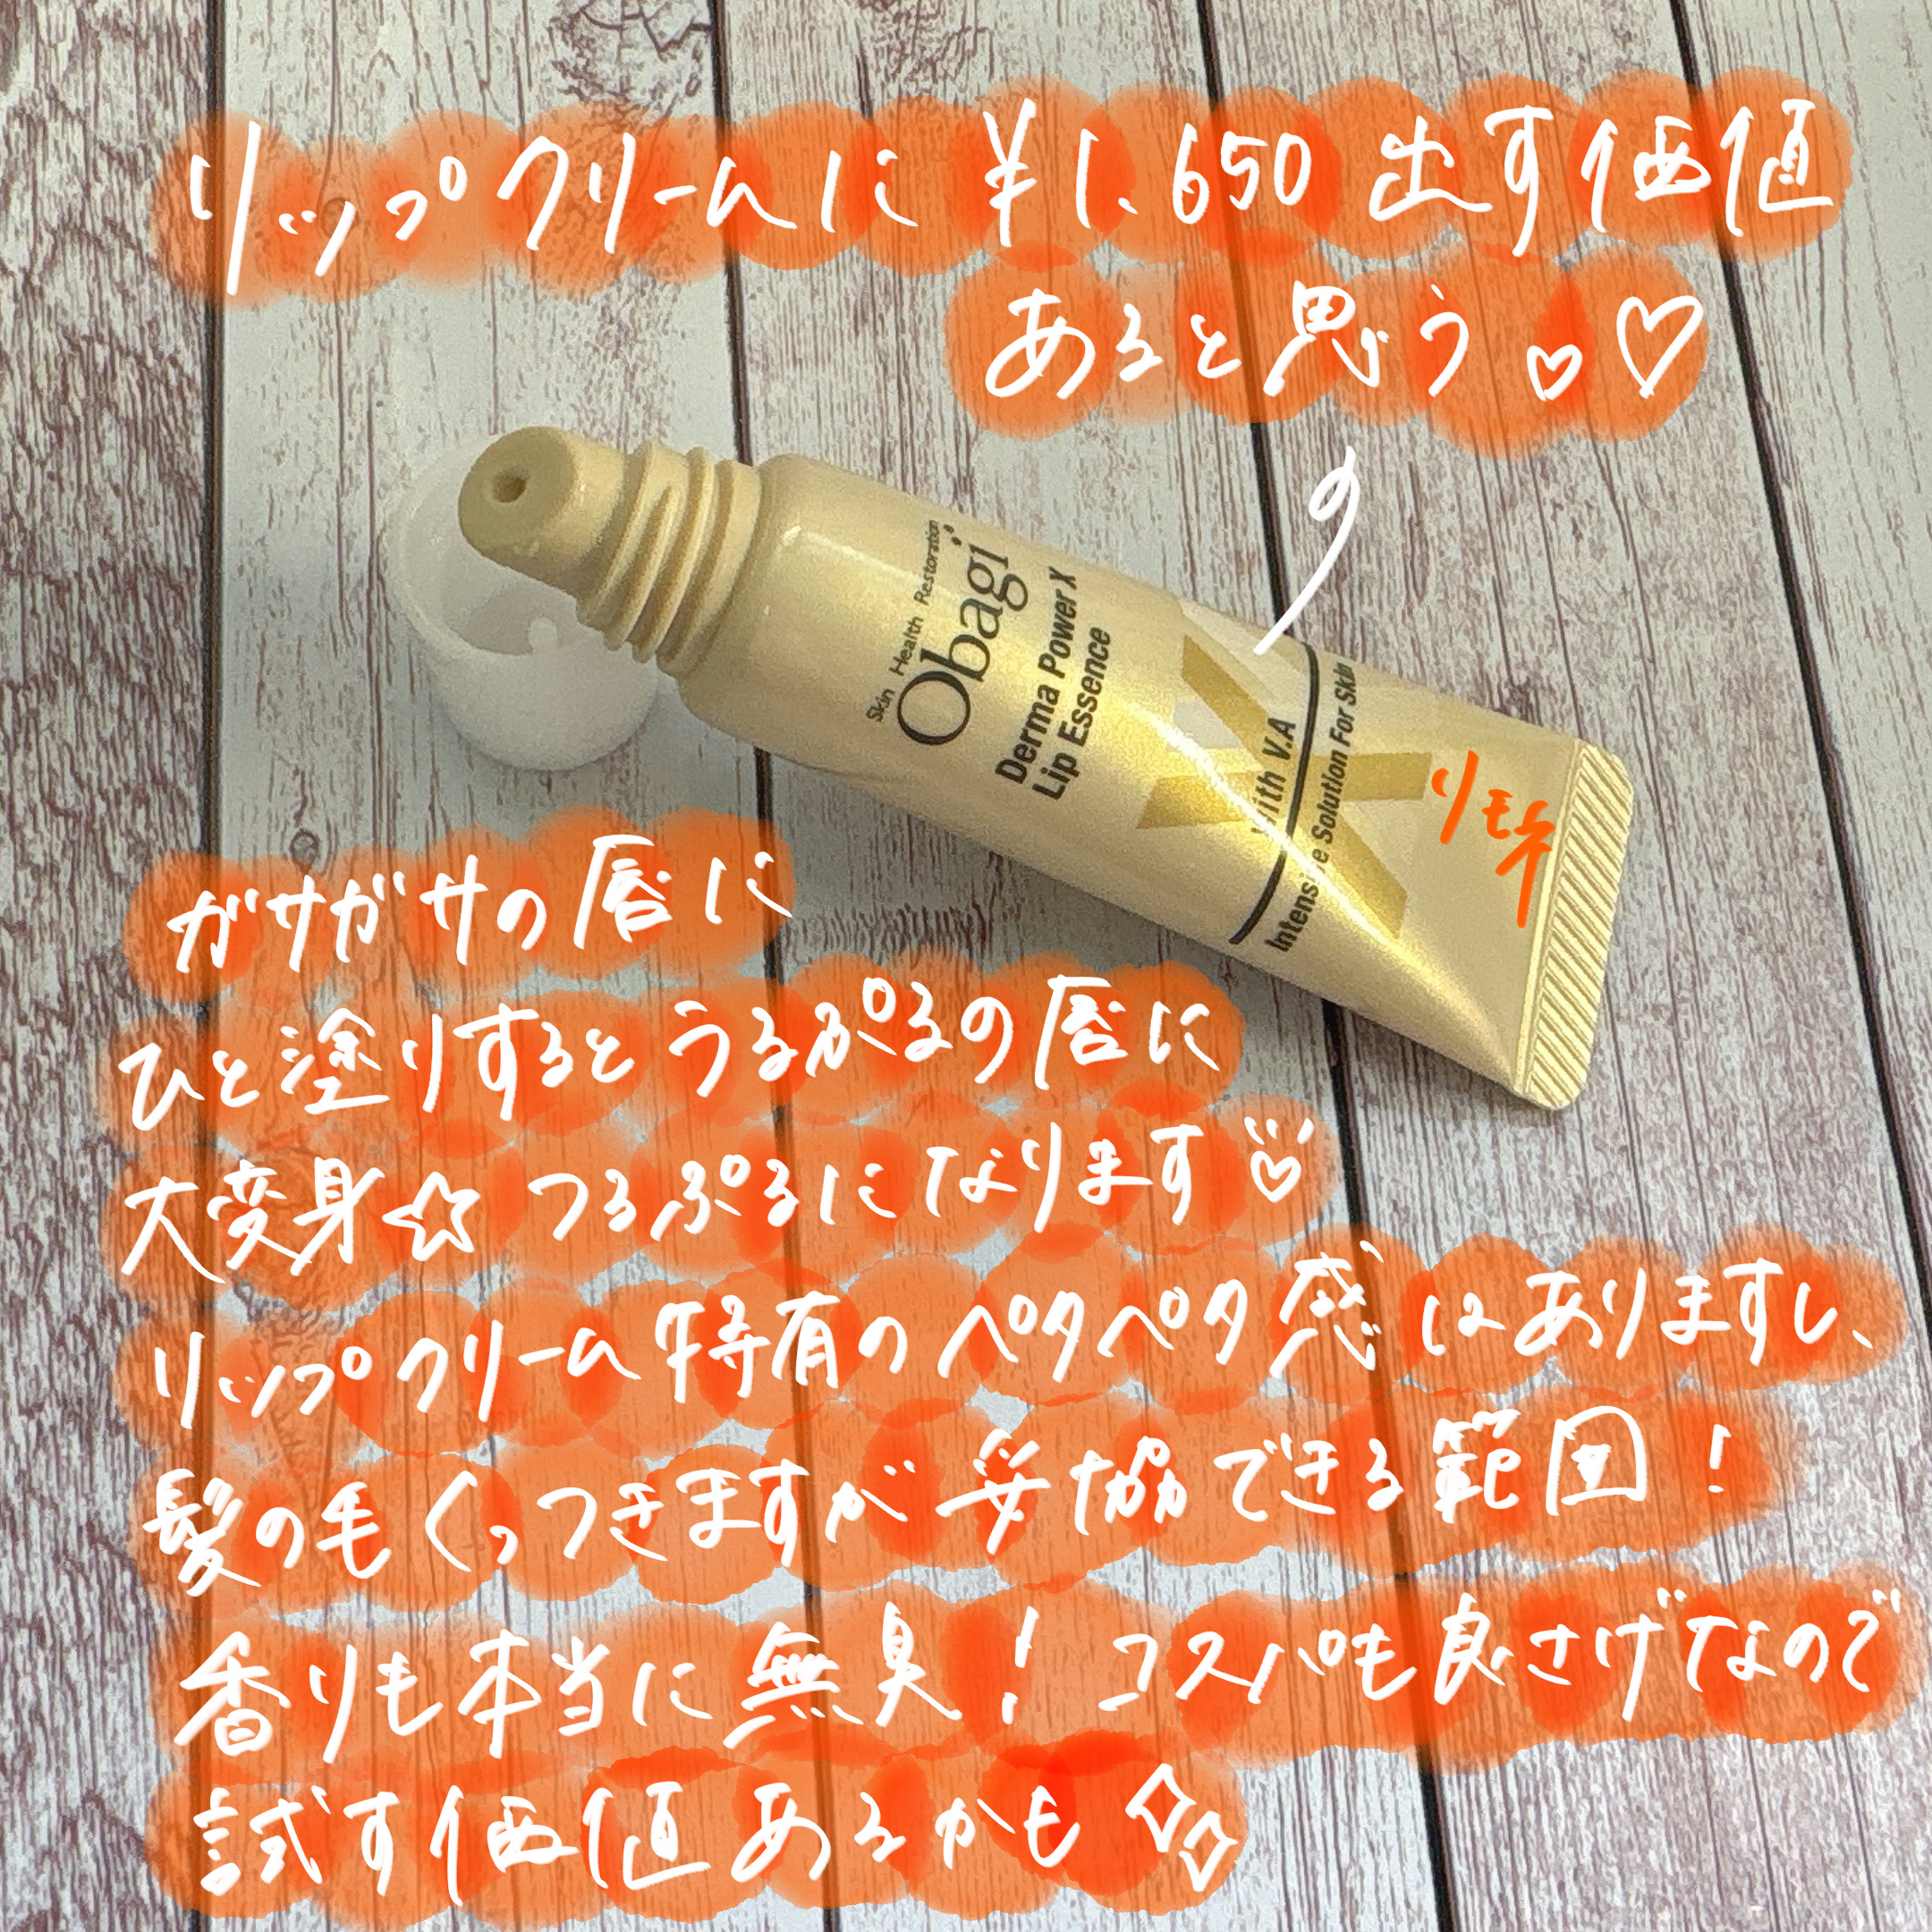 リップクリームに ¥1.650 出す価値
あると思う。♡
Skin Health Restoration
Obagi
Derma Power X
Lip Essence
X
With V.A
Intensive Solution For Skin
ガサガサの唇に
ひと塗りするとうるぷるの唇に
大変身☆ つるぷるになります♡
リップクリーム特有のペタペタ感はありますし、
髪の毛くっつきますが妥協できる範囲！
香りも本当に無臭！コスパも良さげなので
試す価値あるかも